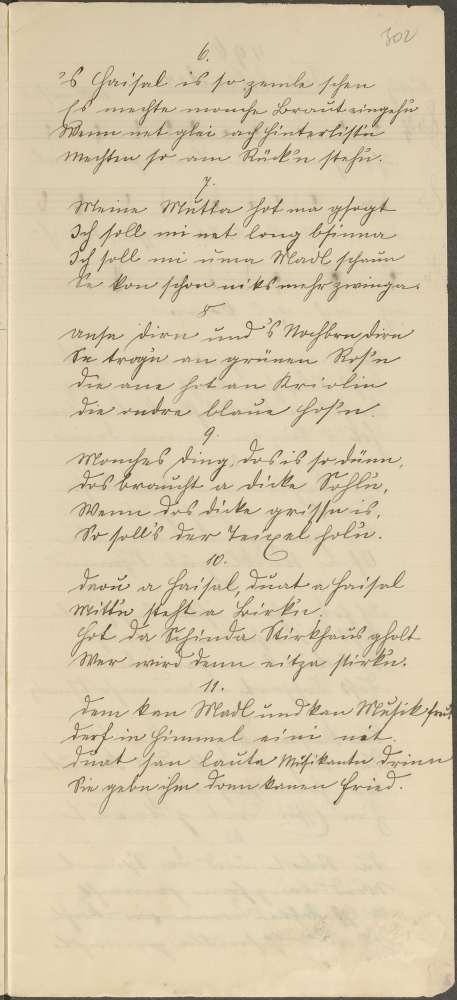 302
6.
's Haisal is so zemle schen
Es mechte monche Braut eingehn
Wenn net glei ach hinterlist'n
Mechten so am Rück'n stehn.
7.
Meine Mutta hot ma gsogt
Ich soll mi net long bsinna
Ich soll mi uma Madl schaun
Se kon schon niks mehr zwinga.
8
Unsa Dirn und 's Nochbrn Dirn
Se trogn an grünen Ros'n
Die ane hot an Kriolin
Die ondre blaue Hos'n.
9.
Monches Ding, das is so dünn,
Dos braucht a dicke Sohln,
Wenn dos dicke grissn is,
So soll's der Teixel holn.
10.
Draou a Haisal, duat a Haisal
Mitt'n steht a Birk'n.
Hot da Schinda Stirkhaus gholt
Wer wird denn eitza stirkn.
11.
Dem kan Madl und kan Musik freut
Derf in Himmel eini net.
Duat san lauta Musikantn drinn
Sie gebn ihm donn kanen Fried.